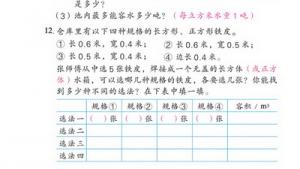 是多少？
（3）池内最多能容水多少吨？（每立方米水重1吨）
12. 仓库里有以下四种规格的长方形、正方形铁皮。
① 长0.6米，宽0.4米； ② 长0.6米，宽0.5米；
③ 长0.5米，宽0.4米； ④ 边长0.4米。
张师傅从中选5张铁皮，焊接成一个无盖的长方体（或正方
体）水箱，可以选哪几种规格的铁皮，各要选几张？你能找
到多少种不同的选法？在下表中填一填。
规格① 规格② 规格③ 规格④ 容积/m³
选法一 （ ）张 （ ）张 （ ）张 （ ）张
选法二
选法三
选法四